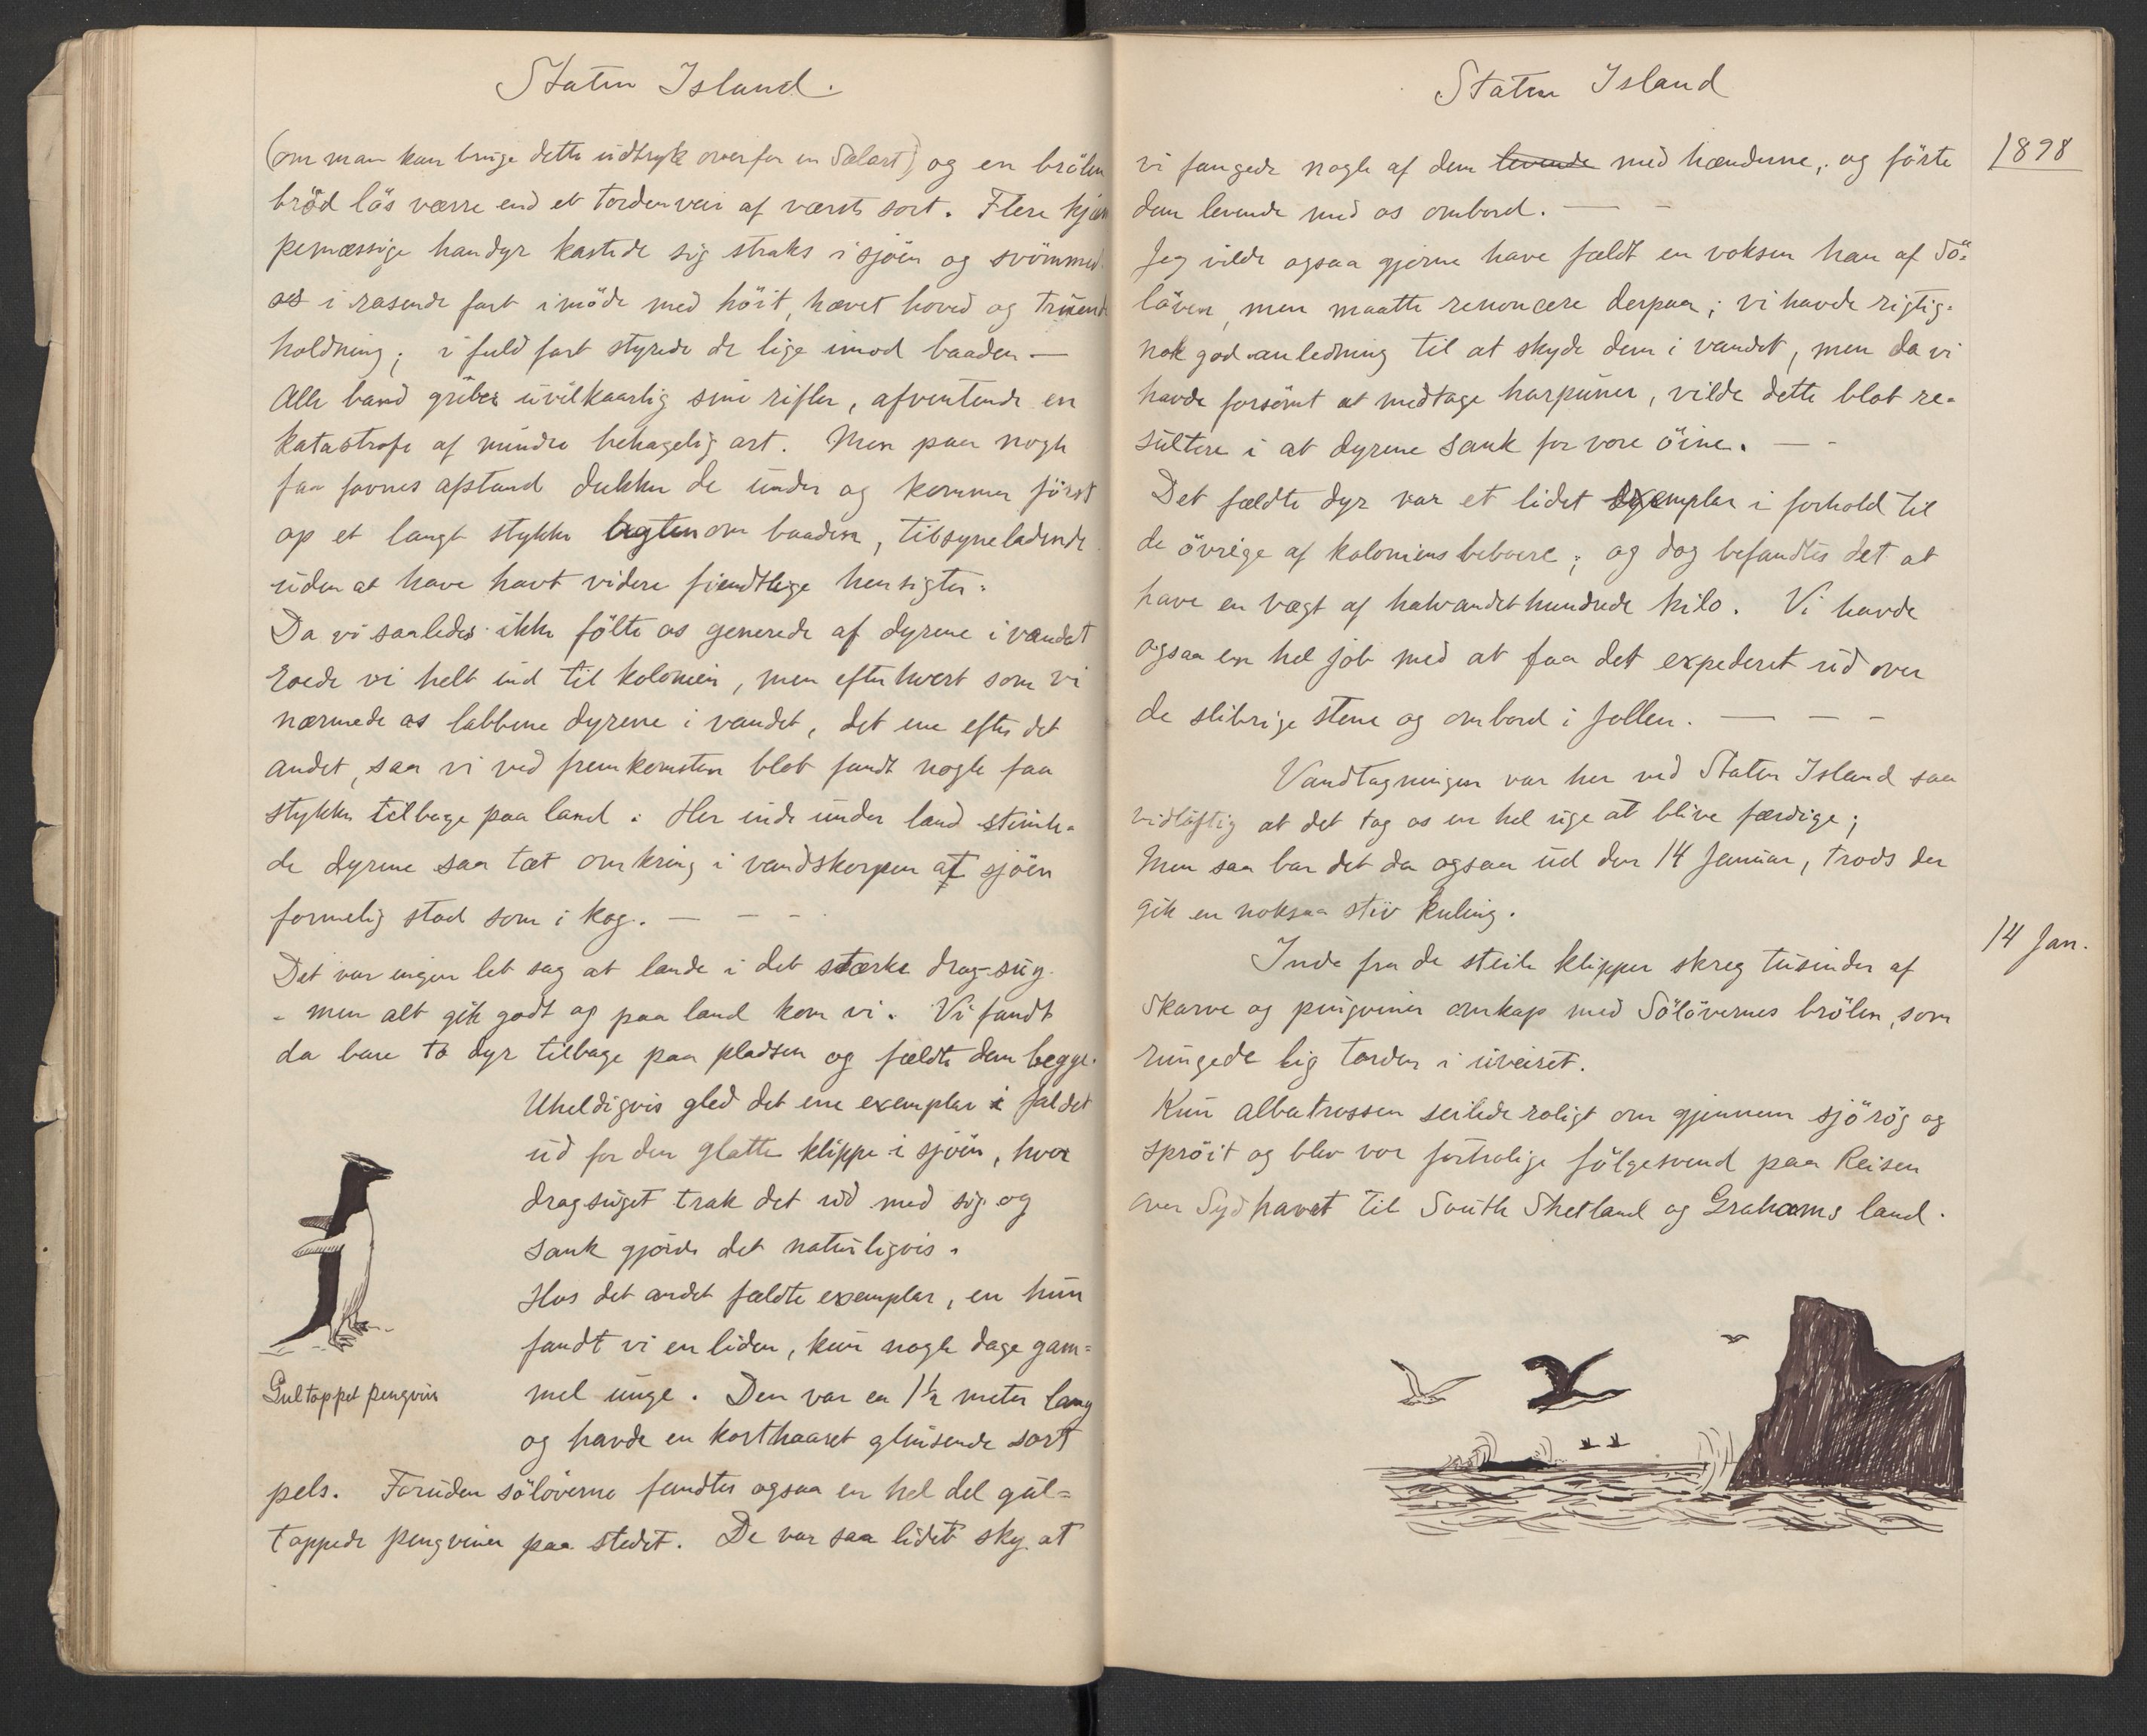 Staten Island.
(om man kan bruge dette udtryk overfor en Sælart) og en brölen
bröd lös værre end et tordenveir af værste sort. Flere kjæm
pemæssige handyr kastede sig straks i sjöen og svömmed
os i rasende fart imöde med höit, hævet hoved og truende
holdning; i fuld fart styrede de lige imod baaden —
Alle band griber uvilkaarlig sine rifler, afventende en
katastrofe af mindre behagelig art. Men paa nogle
faa favnes afstand dukker de under og kommer först
op et langt stykke agtenom baaden, tilsyneladende
uden at have havt videre fiendtlige hensigter.
Da vi saaledes ikke fölte os generede af dyrene i vandet
roede vi helt ind til kolonien, men efterhvert som vi
nærmede os labbene dyrene i vandet, det ene efter det
andet, saa vi ved fremkomsten blot fandt nogle faa
stykker tilbage paa land. Her inde under land stimle-
de dyrene saa tæt omkring i vandskorpen at sjöen
formelig stod som i kog. — — -
Det var ingen let sag at lande i det stærke drag-sug
- men alt gik godt og paa land kom vi. Vi fandt
da bare to dyr tilbage paa pladsen og fældte dem begge.
Uheldigvis gled det ene exemplar i faldet
ud for den glatte klippe i sjöen, hvor
dragsuget trak det ud med sig og
sank gjörde det naturligvis.
Hos det andet fældte exemplar, en hun
fandt vi en liden, kun nogle dage gam=
mel unge. Den var ca 1½ meter lang
og havde en korthaaret glinsende sort
pels. Foruden sölöverne fandtes ogsaa en hel del gul=
toppede pengviner paa stedet. De var saa lidet sky at
Gultoppet pengvin
Staten Island
1898
vi fangede nogle af dem levende med hænderne, og förte
dem levende med os ombord. — -
Jeg vilde ogsaa gjerne have fældt en voksen han af Sö=
löven, men maatte renoncere derpaa; vi havde rigtig-
nok god anledning til at skyde dem i vandet, men da vi
havde forsömt at medtage harpuner, vilde dette blot re-
sultere i at dyrene sank for vore öine. — -
Det fældte dyr var et lidet exemplar i forhold til
de övrige af koloniens beboere; og dog befandtes det at
have en vægt af halvandethundrede kilo. Vi havde
ogsaa en hel job med at faa det expederet ud over
de slibrige stene og ombord i jollen. — — -
Vandtagningen var her ved Staten Island saa
vidlöftig at det tog os en hel uge at blive færdige;
Men saa bar det da ogsaa ud den 14 Januar, trods der
gik en noksaa stiv kuling.
14 Jan.
Inde fra de steile klipper skreg tusinder af
Skarve og pingviner omkap med Sölövernes brölen, som
rungede lig torden i uveiret.
Kun albatrossen seilede roligt om gjennem sjörög og
spröit og blev vor fortrolige fölgesvend paa Reisen
over Sydhavet til South Shetland og Grahams land.